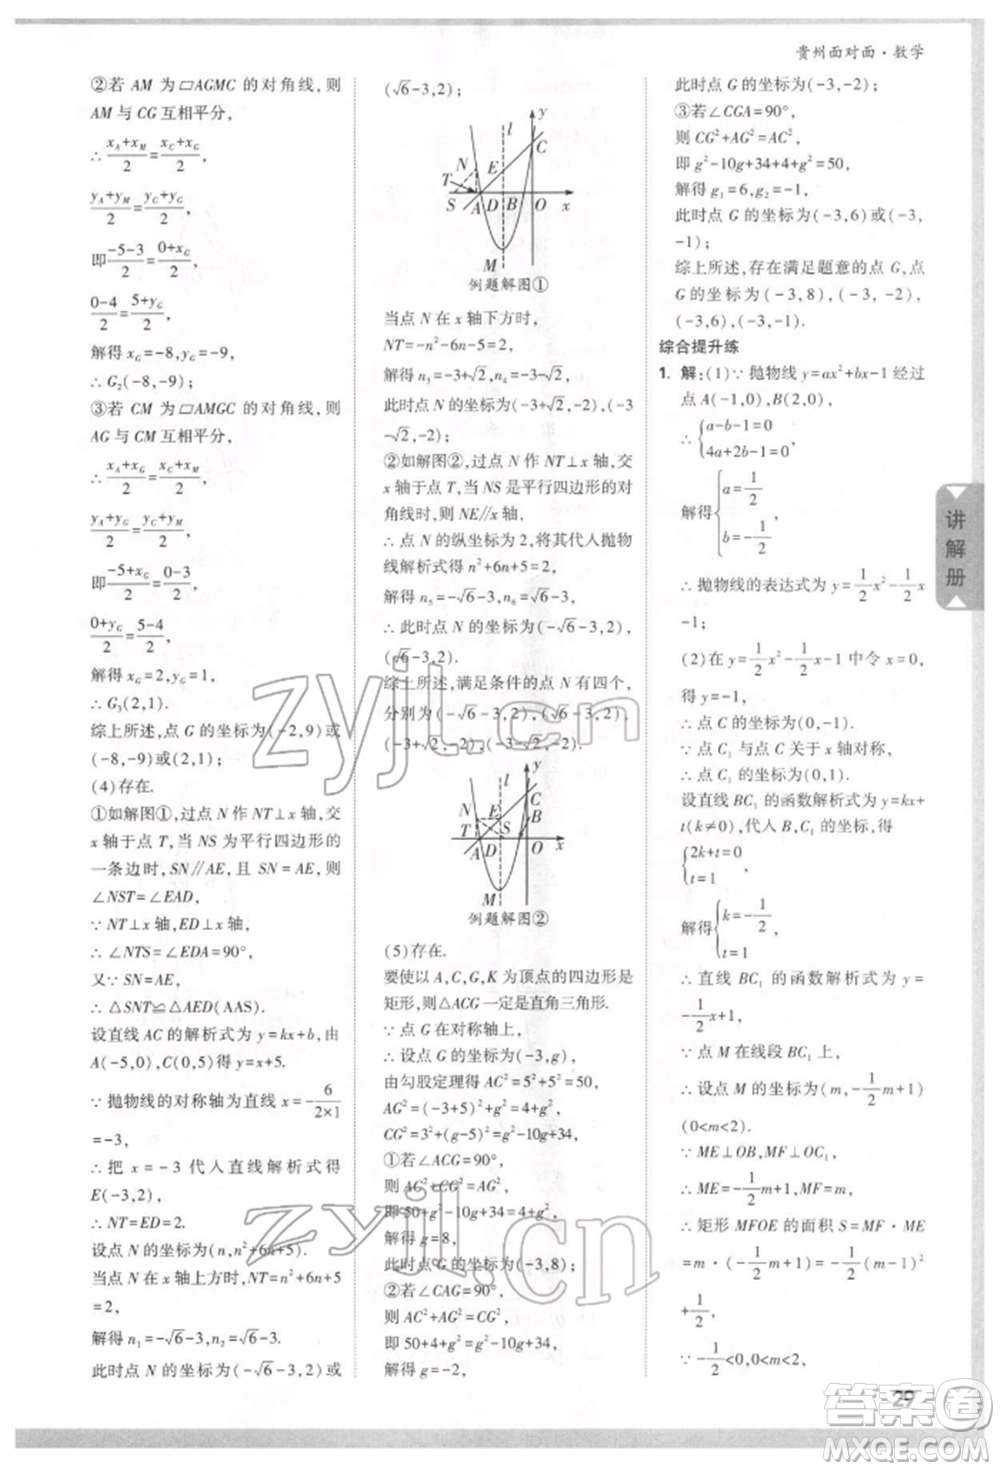 贵州面对面·数学
②若 AM 为 ▱AGMC 的对角线,则
AM 与 CG 互相平分,
∴ (x_A+x_M)/2=(x_C+x_G)/2,
(y_A+y_M)/2=(y_C+y_G)/2,
即(-5-3)/2=(0+x_G)/2,
(0-4)/2=(5+y_G)/2,
解得 x_G=-8,y_G=-9,
∴ G₂(-8,-9);
③若 CM 为 ▱AMGC 的对角线,则
AG 与 CM 互相平分,
∴ (x_A+x_G)/2=(x_C+x_M)/2,
(y_A+y_G)/2=(y_C+y_M)/2,
即(-5+x_G)/2=(0-3)/2,
(0+y_G)/2=(5-4)/2,
解得 x_G=2,y_G=1,
∴ G₃(2,1).
综上所述,点 G 的坐标为(-2,9)或
(-8,-9)或(2,1);
(4)存在.
①如解图①,过点 N 作 NT⊥x 轴,交
x 轴于点 T,当 NS 为平行四边形的
一条边时,SN∥AE,且 SN=AE,则
∠NST=∠EAD,
∵ NT⊥x 轴,ED⊥x 轴,
∴ ∠NTS=∠ADE=90°,
又∵ SN=AE,
∴ △SNT≌△AED(AAS).
设直线 AC 的解析式为 y=kx+b,由
A(-5,0),C(0,5)得 y=x+5.
∵ 抛物线的对称轴为直线 x=-6/(2×1)
=-3,
∴ 把 x=-3 代入直线解析式得
E(-3,2),
∴ NT=ED=2.
设点 N 的坐标为(n,n²+6n+5).
当点 N 在 x 轴上方时,NT=n²+6n+5
=2,
解得 n₁=-√6-3,n₂=√6-3.
此时点 N 的坐标为(-√6-3,2)或
(√6-3,2);
y
l
C
N
E
T
S
A
D
B
O
x
M
例题解图①
当点 N 在 x 轴下方时,
NT=-n²-6n-5=2,
解得 n₃=-3+√2,n₄=-3-√2,
此时点 N 的坐标为(-3+√2,-2),(-3
-√2,-2);
②如解图②,过点 N 作 NT⊥x 轴,交
x 轴于点 T,当 NS 是平行四边形的对
角线时,则 NE∥x 轴,
∴ 点 N 的纵坐标为 2,将其代入抛物
线解析式得 n²+6n+5=2,
解得 n₅=-√6-3,n₆=√6-3,
∴ 此时点 N 的坐标为(-√6-3,2),
(√6-3,2).
综上所述,满足条件的点 N 有四个,
分别为(-√6-3,2),(√6-3,2),
(-3+√2,-2),(-3-√2,-2).
y
l
C
N
E
B
T
S
A
D
O
x
M
例题解图②
(5)存在.
要使以 A,C,G,K 为顶点的四边形是
矩形,则 △ACG 一定是直角三角形.
∵ 点 G 在对称轴上,
∴ 设点 G 的坐标为(-3,g),
由勾股定理得 AC²=5²+5²=50,
AG²=(-3+5)²+g²=4+g²,
CG²=3²+(g-5)²=g²-10g+34,
①若∠ACG=90°,
则 AC²+CG²=AG²,
即 50+g²-10g+34=4+g²,
解得 g=8,
此时点 G 的坐标为(-3,8);
②若∠CAG=90°,
则 AC²+AG²=CG²,
即 50+4+g²=g²-10g+34,
解得 g=-2,
此时点 G 的坐标为(-3,-2);
③若∠CGA=90°,
则 CG²+AG²=AC²,
即 g²-10g+34+4+g²=50,
解得 g₁=6,g₂=-1,
此时点 G 的坐标为(-3,6)或(-3,
-1);
综上所述,存在满足题意的点 G,点
G 的坐标为(-3,8),(-3,-2),
(-3,6),(-3,-1).
综合提升练
1. 解:(1)∵ 抛物线 y=ax²+bx-1 经过
点 A(-1,0),B(2,0),
∴ {a-b-1=0
4a+2b-1=0,
解得{a=1/2
b=-1/2,
∴ 抛物线的表达式为 y=1/2x²-1/2x
-1;
(2)在 y=1/2x²-1/2x-1 中令 x=0,
得 y=-1,
∴ 点 C 的坐标为(0,-1).
∵ 点 C₁ 与点 C 关于 x 轴对称,
∴ 点 C₁ 的坐标为(0,1).
设直线 BC₁ 的函数解析式为 y=kx+
t(k≠0),代入 B,C₁ 的坐标,得
{2k+t=0
t=1,
解得{k=-1/2,
t=1
∴ 直线 BC₁ 的函数解析式为 y=
-1/2x+1,
∵ 点 M 在线段 BC₁ 上,
∴ 设点 M 的坐标为(m,-1/2m+1)
(0<m<2).
∵ ME⊥OB,MF⊥OC₁,
∴ ME=-1/2m+1,MF=m,
∴ 矩形 MFOE 的面积 S=MF·ME
=m·(-1/2m+1)=-1/2(m-1)²
+1/2,
∵ -1/2<0,0<m<2,
讲解册
29
zyjl.cn
zyjl.cn
答案圈
MXQE.COM